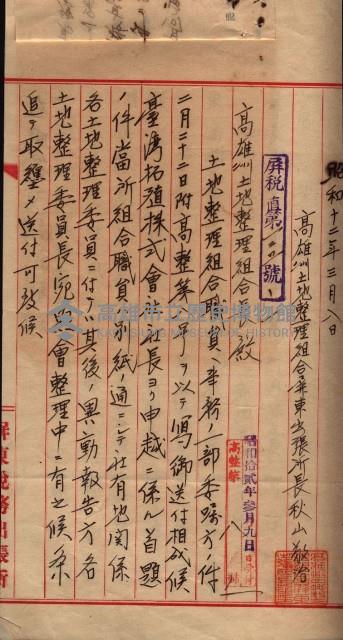 昭和十二年三月八日
高雄州土地整理組合屏東出張所長秋山敬治
屏税直第 號ノ
高雄州土地整理組合長殿
土地整理組合職員ノ事務ノ一部委囑方ノ件
昭和拾貳年參月九日
高整第
二月二十二日附高整第 號ノ ヲ以テ寫御送付相成候
臺灣拓殖株式會社社長ヨリ申越ニ係ル首題
ノ件當所組合職員別紙ノ通ニシテ社有地關係
各土地整理委員ニ付テハ其後ノ異動報告方各
土地整理委員長宛照會整理中ニ有之候條
追テ取纒メ送付可致候
屏東税務出張所
高雄市立歷史博物館
KAOHSIUNG MUSEUM OF HISTORY